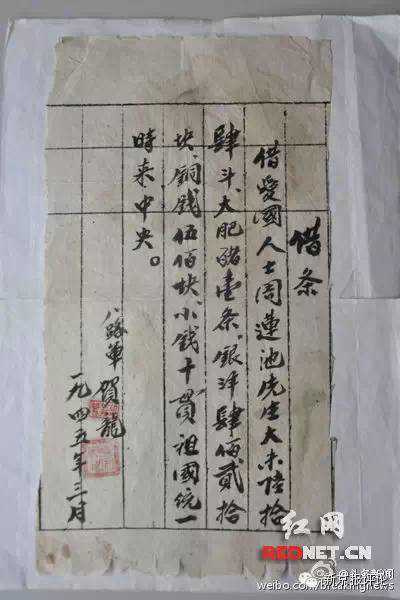 借条
借爱國人士周莲池先生大米陸拾
肆斗、大肥豬壹条、銀洋肆佰贰拾
块、铜钱伍佰块、小钱十贯、祖國统一
時来中央。
八路軍 賀龍
一九四五年三月
红网
REDNET.CN
@头条新闻
weibo.com/breakingnews